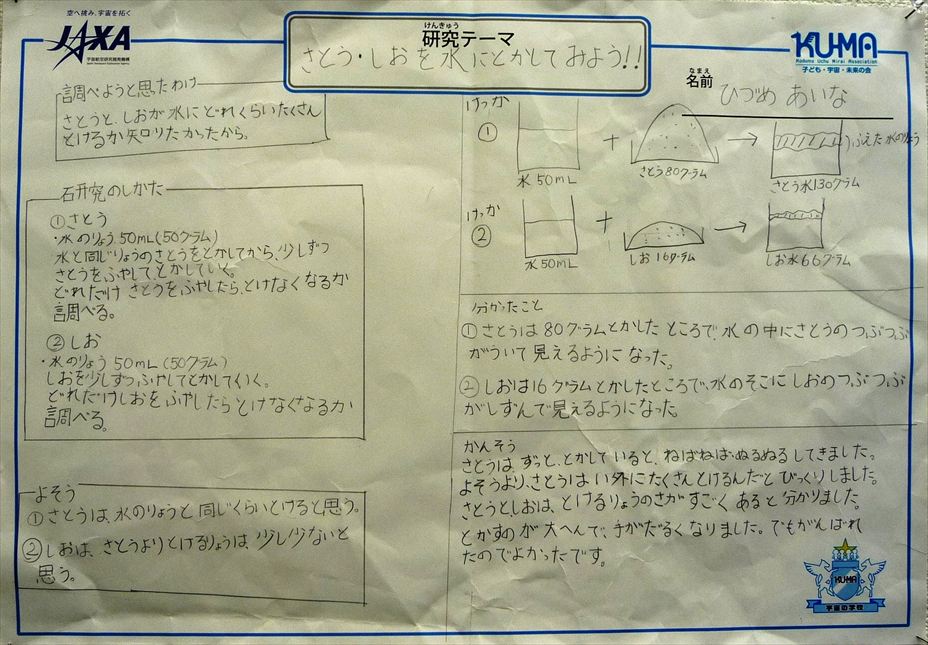 空へ挑み、宇宙を拓く
JAXA
宇宙航空研究開発機構
けんきゅう
研究テーマ
さとう・しおを水にとかしてみよう!!
KU-MA
Kodomo Uchu Mirai Association
子ども・宇宙・未来の会
なまえ
名前
ひづめ あいな
調べようと思たわけ
さとうと、しおが水にどれくらいたくさん
とけるか知りたかったから。
研究のしかた
①さとう
・水のりょう50mL(50グラム)
水と同じりょうのさとうをとかしてから、少しずつ
さとうをふやしてとかしていく。
どれだけさとうをふやしたら、とけなくなるか
調べる。
②しお
・水のりょう50mL(50グラム)
しおを少しずつふやしてとかしていく。
どれだけしおをふやしたらとけなくなるか
調べる。
よそう
①さとうは、水のりょうと同じくらいとけると思う。
②しおは、さとうよりとけるりょうは、少し少ないと
思う。
けっか
①
+
→
ふえた水のりょう
水50mL
さとう80グラム
さとう水130グラム
けっか
②
+
→
水50mL
しお16グラム
しお水66グラム
分かったこと
①さとうは80グラムとかしたところで、水の中にさとうのつぶつぶ
がういて見えるようになった。
②しおは16グラムとかしたところで、水のそこにしおのつぶつぶ
がしずんで見えるようになった。
かんそう
さとうは、ずっと、とかしていると、ねばねば・ぬるぬるしてきました。
よそうより、さとうはい外にたくさんとけるんだとびっくりしました。
さとうとしおは、とけるりょうのさがすごくあると分かりました。
とかすのが大へんで、手がだるくなりました。でもがんばれ
たのでよかったです。
KU-MA
宇宙の学校